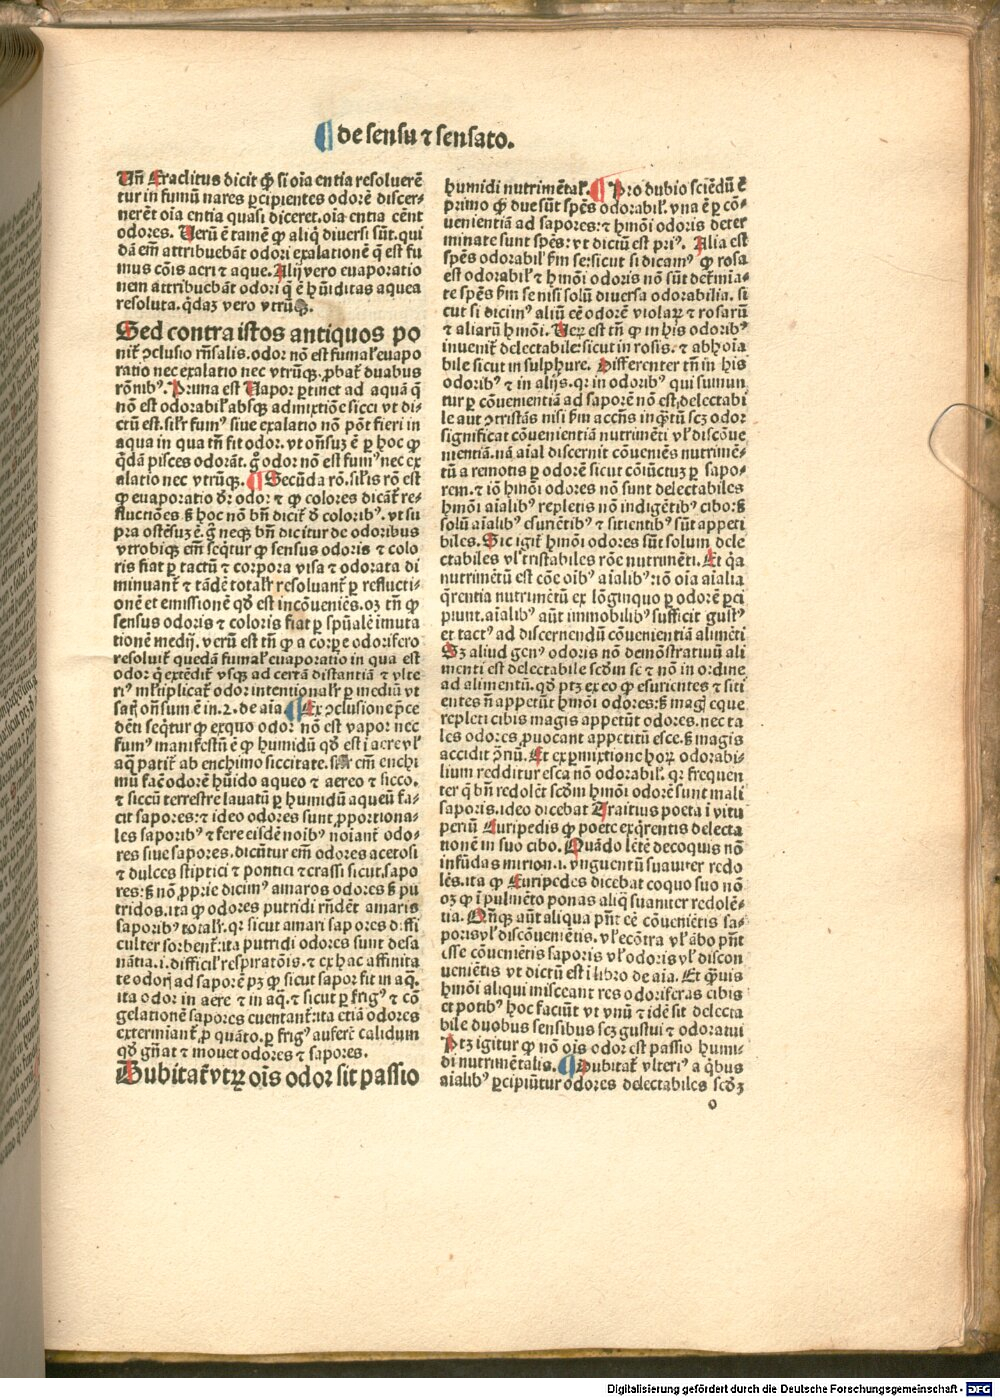 ¶ de sensu ⁊ sensato.
Un̄ Eraclitus dicit ꝙ si oīa entia resoluerē
tur in fumū nares ꝑcipientes odorē discer-
nerēt oīa entia quasi diceret. oīa entia eēnt
odores. Verū ē tamē ꝙ aliq̄ diuersi sūt. qui
dā em̄ attribuebāt odori exalationē q̄ est fu
mus cōis aeri ⁊ aque. Alij vero euaporatio
nem attribuebāt odori q̄ ē hūiditas aquea
resoluta. q̄daꝫ vero vtrūꝙ.
Sed contra istos antiquos po
nit̄ ꝯclusio rn̄salis. odor nō est fumal' euapo
ratio nec exalatio nec vtrūꝙ. ꝓbat̄ duabus
rōnibꝰ. Prima est Vapor ꝑtinet ad aquā q̄
nō est odorabil' absꝙ admixtiōe sicci vt di-
ctū est. sil'r fumꝰ siue exalatio nō pōt fieri in
aqua in qua tn̄ fit odor. vt on̄suꝫ ē ꝑ hoc ꝙ
q̄dā pisces odorāt. g̊ odor nō est fumꝰ nec ex
alatio nec vtrūꝙ. ¶ Secūda rō. sil'is rō est
ꝙ euaporatio dr̄ odor ⁊ ꝙ colores dicāt̄ re-
fluctiōes sꝫ hoc nō bn̄ dicit̄ d̄ coloribꝰ. vt su
pra ostēsuꝫ ē. g̊ neqꝫ bn̄ dicitur de odoribus
vtrobiqꝫ em̄ seq̄tur ꝙ sensus odoris ⁊ colo
ris fiat ꝑ tactū ⁊ corpora visa ⁊ odorata di
minuant̄ ⁊ tādē total'r resoluant̄ ꝑ reflucti-
onē et emissionē qđ est incōueniēs. oꝫ tn̄ ꝙ
sensus odoris ⁊ coloris fiat ꝑ spūalē imuta
tionē medij. verū est tn̄ ꝙ a corꝑe odorifero
resoluit̄ quedā fumal' euaporatio in qua est
odor q̄ extēdit̄ vsqꝫ ad certā distantiā ⁊ vlte
riꝰ ml'tiplicat̄ odor intentional'r ꝑ mediū vt
on̄sum ē in .2. de aīa. ¶ Ex ꝯclusione p̄ce
dēti seq̄tur ꝙ exquo odor nō est vapor nec
fumꝰ manifestū ē ꝙ humidū qđ est ī aere vl'
aq̄ patit̄ ab enchimo siccitate. em̄ enchi
mū fac̄ odorē hūido aqueo ⁊ aereo ⁊ sicco.
⁊ siccū terrestre lauatū ꝑ humidū aqueū fa-
cit sapores: ⁊ ideo odores sunt ꝓportiona-
les saporibꝰ ⁊ fere eisdē noībꝰ noīant̄ odo-
res siue sapores. dicūtur em̄ odores acetosi
⁊ dulces stiptici ⁊ pontici ⁊ crassi sicut. sapo
res: sꝫ nō ꝓprie dicimꝰ amaros odores sꝫ pu
tridos. ita ꝙ odores putridi rn̄dēt amaris
saporibꝰ total'r. qr sicut amari sapores diffi
culter sorbent̄: ita putridi odores sunt desa
nātia .i. difficil' respiratōis. ⁊ ex hac affinita
te odorꝫ ad saporē pꝫ ꝙ sicut sapor fit in aq̄.
ita odor in aere ⁊ in aq̄. ⁊ sicut ꝑ frigꝰ ⁊ cō
gelationē sapores euentant̄: ita etiā odores
exterminant̄ ꝓ quāto. ꝑ frigꝰ aufert̄ calidum
qđ gn̄at ⁊ mouet odores ⁊ sapores.
Dubitat̄ vtrꝝ oīs odor sit passio
humidi nutrimētal'. ¶ Pro dubio sciēdū ē
primo ꝙ due sūt spēs odorabil'. vna ē ꝑ cō-
uenientiā ad sapores: ⁊ hmōi odoris deter
minate sunt spēs: vt dictū est priꝰ. Alia est
spēs odorabil' ẜm se: sicut si dicamꝰ ꝙ rosa
est odorabil' ⁊ hmōi odoris nō sūt det̄mīa-
te spēs ẜm se nisi solū diuersa odorabilia. si
cut si dicimꝰ aliū eē odorē violaꝝ ⁊ rosarū
⁊ aliarū hmōi. Veꝝ est tn̄ ꝙ in his odoribꝰ
inuenit̄ delectabile: sicut in rosis. ⁊ abhoīa
bile sicut in sulphure. Differenter tn̄ in his
odoribꝰ ⁊ in alijs. qr in odoribꝰ qui sumun
tur ꝑ cōuenientiā ad saporē nō est delectabi
le aut ꝯtristās nisi ẜm acc̄ns inq̄tū scꝫ odor
significat cōuenientiā nutrimēti vl' discōue
nientiā. nā aīal discernit cōueniēs nutrimē-
tū a remotis ꝑ odorē sicut cōiūctuꝫ ꝑ sapo-
rem. ⁊ iō hmōi odores nō sunt delectabiles
hmōi aīalibꝰ repletis nō indigētibꝰ cibo: sꝫ
solū aīalibꝰ esuriētibꝰ ⁊ sitientibꝰ sūt appeti
biles. Sic igit̄ hmōi odores sūt solum dele
ctabiles vl' tristabiles rōe nutrimēti. Et q̄a
nutrimētū est cōe oībꝰ aīalibꝰ: iō oīa aīalia
q̄rentia nutrimētū ex lōginquo ꝑ odorē ꝑci
piunt. aīalibꝰ aūt immobilibꝰ sufficit gustꝰ
et tactꝰ ad discernendū cōuenientiā alimēti
Sꝫ aliud genꝰ odoris nō demōstratiuū ali
menti est delectabile scđm se ⁊ nō in ordine
ad alimentū. qđ ptꝫ ex eo ꝙ esurientes ⁊ siti
entes n̄ appetūt hmōi odores: sꝫ magꝭ eque
repleti cibis magis appetūt odores. nec ta
les odores ꝓuocant appetitū esce. sꝫ magis
accidit ꝯ̄riū. Et ex ꝑmixtione hoꝝ odorabi-
lium redditur esca nō odorabil'. qr frequen
ter q̄ bn̄ redolēt scđm hmōi odorē sunt mali
saporis. ideo dicebat Traitius poeta ī vitu
periū Euripedis ꝙ poete exq̄rentis delecta
tionē in suo cibo. Quādo lētē decoquis nō
infūdas mirion .i. vnguentū suauiter redo
lēs. ita ꝙ Euripedes dicebat coquo suo nō
oꝫ ꝙ ī pulmēto ponas aliq̄ suauiter redolē-
tia. Qn̄qꝫ aūt aliqua pn̄t eē cōueniētis sa-
poris vl' discōueniētis. vl' ecōtra vl' ābo pn̄t
esse cōueniētis saporis vl' odoris vl' discon
ueniētis vt dictū est ī libro de aīa. Et q̄uis
hmōi aliqui misceant res odoriferas cibis
et potibꝰ hoc faciūt vt vnū ⁊ idē sit delecta
bile duobus sensibus scꝫ gustui ⁊ odoratui
Ptꝫ igitur ꝙ nō oīs odor est passio humi-
di nutrimētalis. ¶ Dubitat̄ vlteriꝰ a q̄bus
aīalibꝰ ꝑcipiūtur odores delectabiles scđꝫ
o
Digitalisierung gefördert durch die Deutsche Forschungsgemeinschaft - DFG